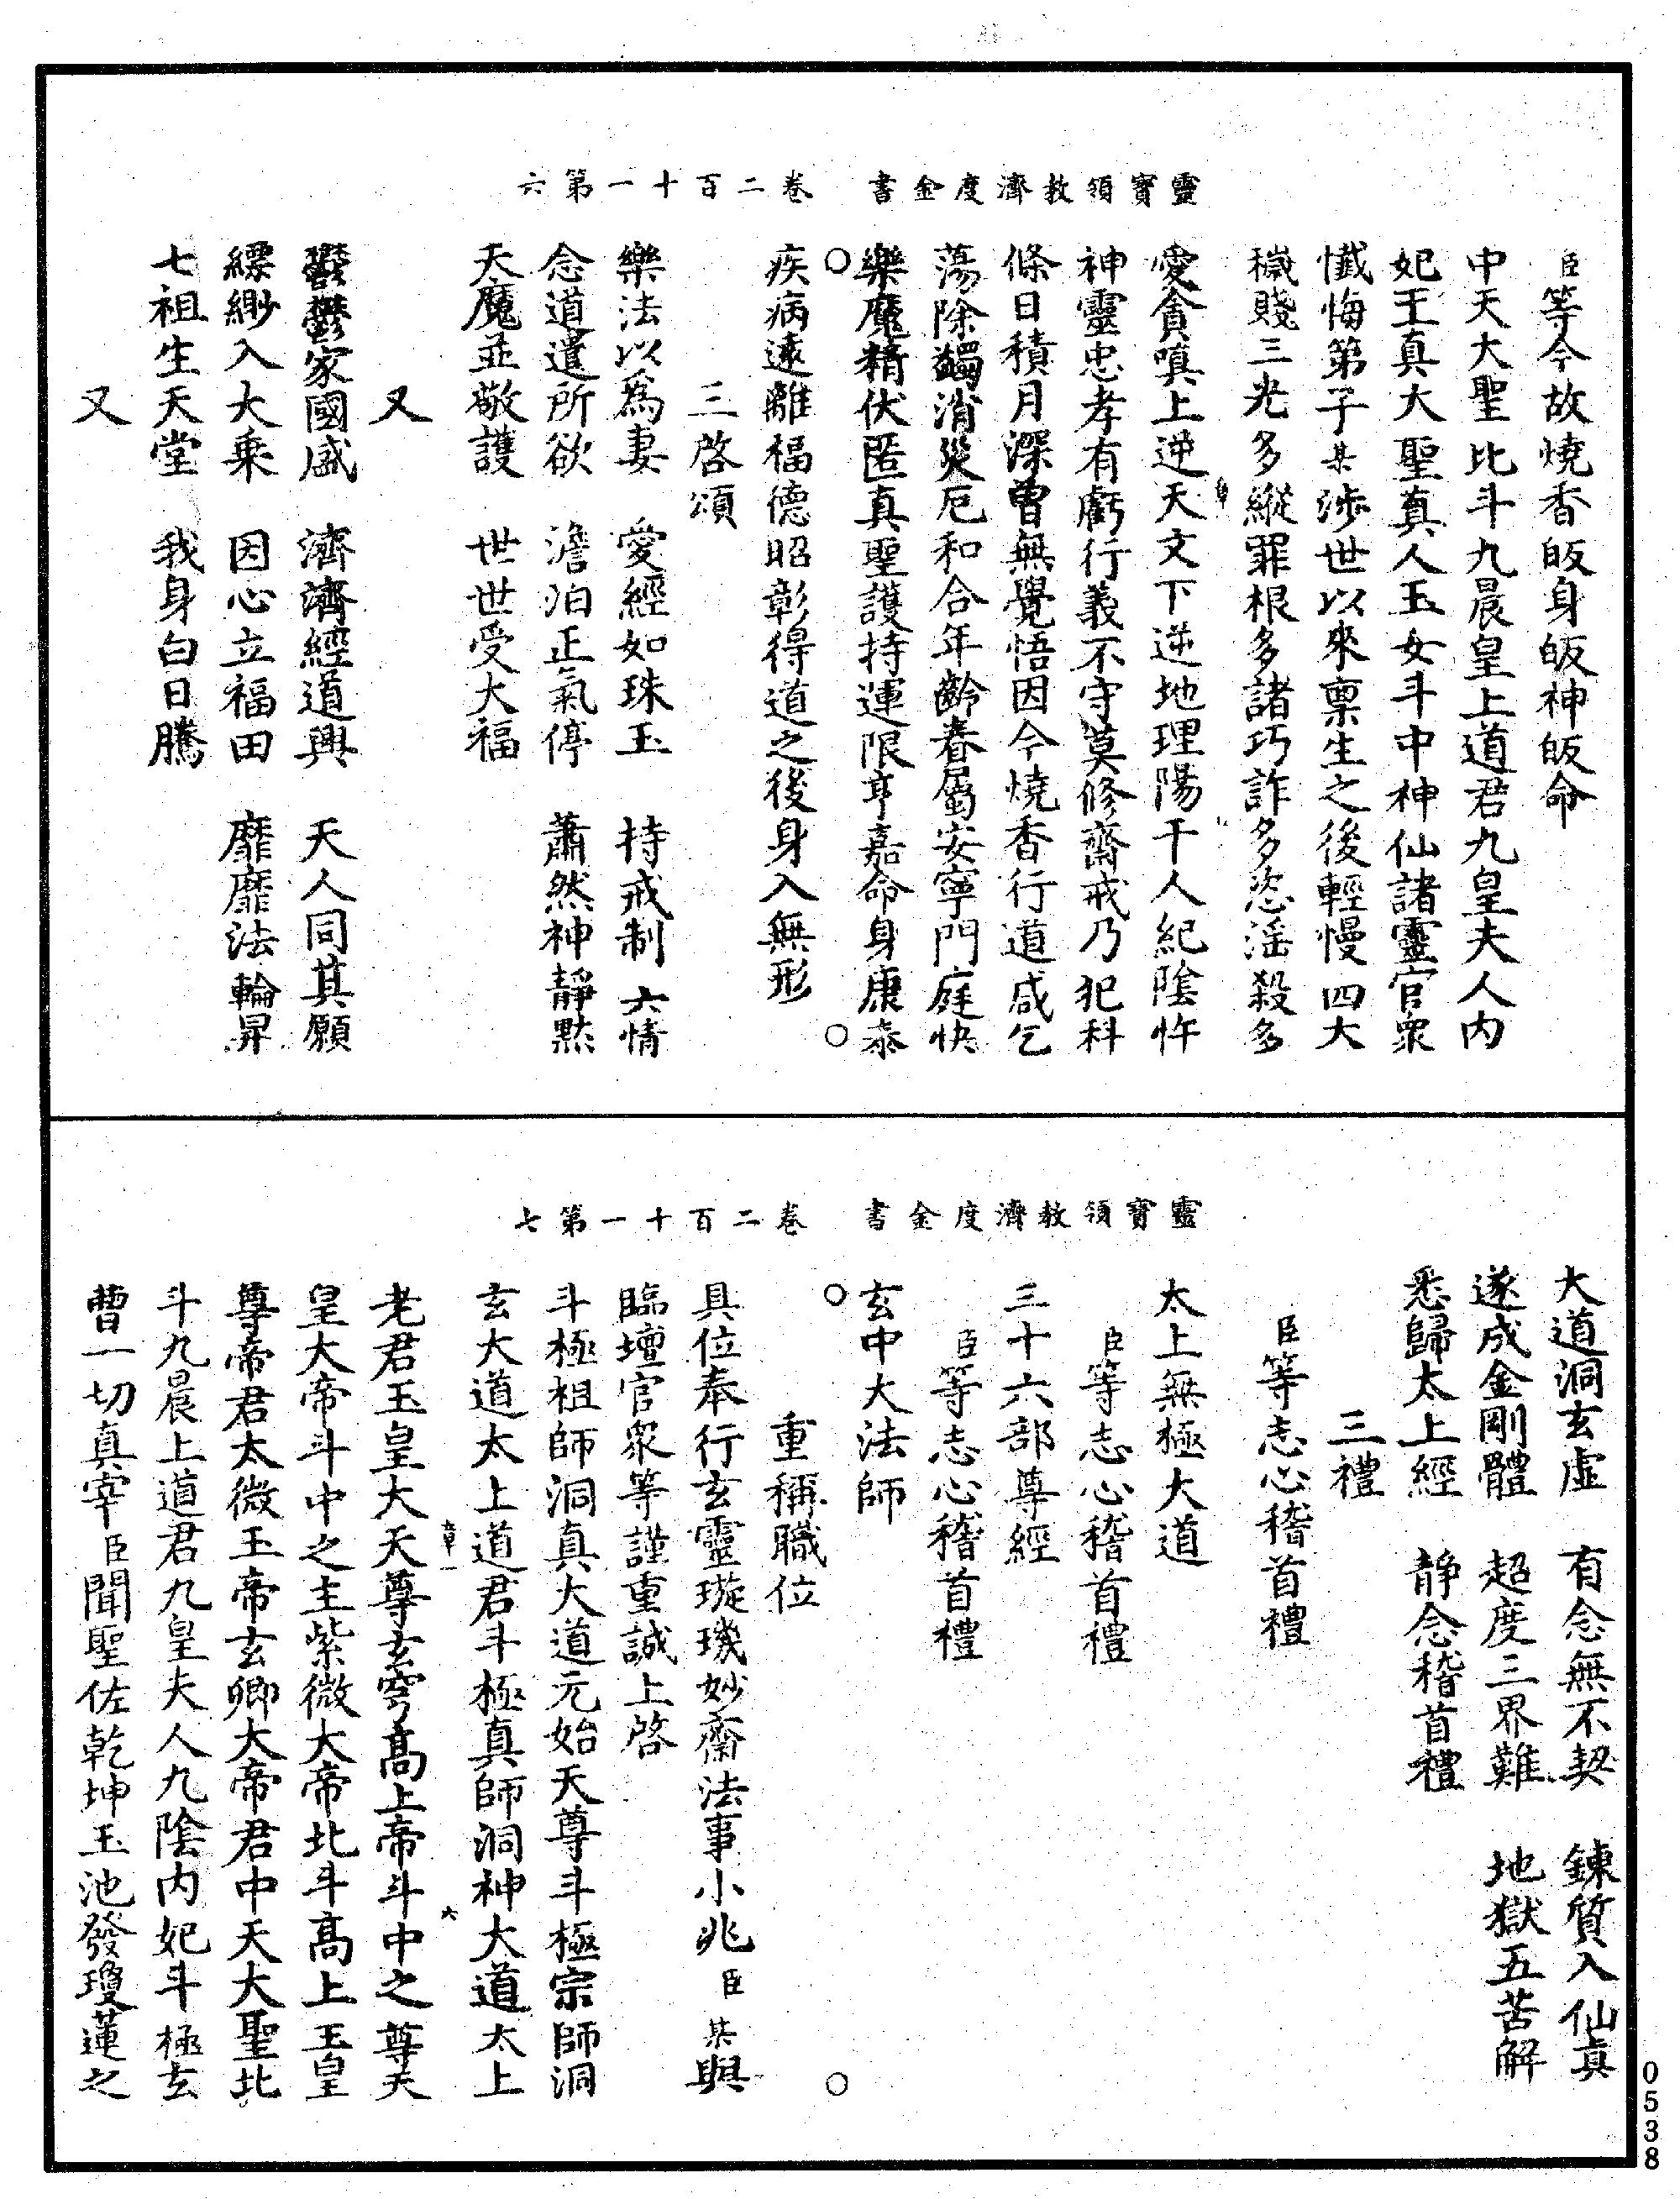 靈寶領教濟度金書 卷二百十一第六
臣等今故燒香皈身皈神皈命
中天大聖北斗九晨皇上道君九皇夫人內
妃王真大聖真人玉女斗中神仙諸靈官眾
懺悔第子某涉世以來稟生之後輕慢四大
穢賤三光多縱罪根多諸巧詐多恣淫殺多
愛貪嗔上逆天文下逆地理陽干人紀陰忤
神靈忠孝有虧行義不守莫修齋戒乃犯科
條日積月深曾無覺悟因今燒香行道咸乞
蕩除蠲消災厄和合年齡眷屬安寧門庭快
樂魔精伏匿真聖護持運限亨嘉命身康泰
疾病遠離福德昭彰得道之後身入無形
三啓頌
樂法以為妻 愛經如珠玉 持戒制六情
念道遣所欲 澹泊正氣停 蕭然神靜默
天魔並敬護 世世受大福
又
鬱鬱家國盛 濟濟經道興 天人同其願
縹緲入大乘 因心立福田 靡靡法輪昇
七祖生天堂 我身白日騰
又
靈寶領教濟度金書 卷二百十一第七
大道洞玄虛 有念無不契 鍊質入仙真
遂成金剛體 超度三界難 地獄五苦解
悉歸太上經 靜念稽首禮
三禮
臣等志心稽首禮
太上無極大道
臣等志心稽首禮
三十六部尊經
臣等志心稽首禮
玄中大法師
重稱職位
具位奉行玄靈璇璣妙齋法事小兆臣某與
臨壇官眾等謹重誠上啓
斗極祖師洞真大道元始天尊斗極宗師洞
玄大道太上道君斗極真師洞神大道太上
老君玉皇大天尊玄穹高上帝斗中之尊天
皇大帝斗中之主紫微大帝北斗高上玉皇
尊帝君太微玉帝玄卿大帝君中天大聖北
斗九晨上道君九皇夫人九陰內妃斗極玄
曹一切真宰臣聞聖佐乾坤玉池發瓊蓮之
0538